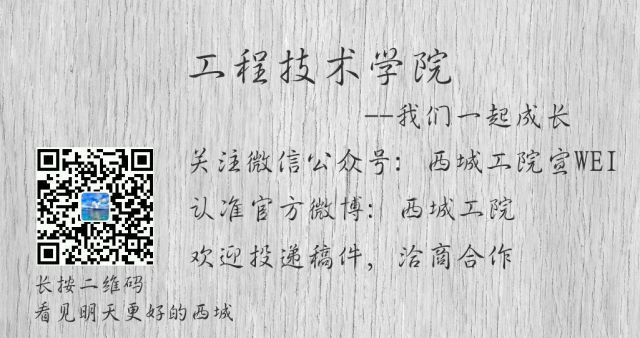 工程技术学院
--我们一起成长
关注微信公众号：西城工院宣WEI
认准官方微博：西城工院
欢迎投递稿件，洽商合作
长按二维码
看见明天更好的西城